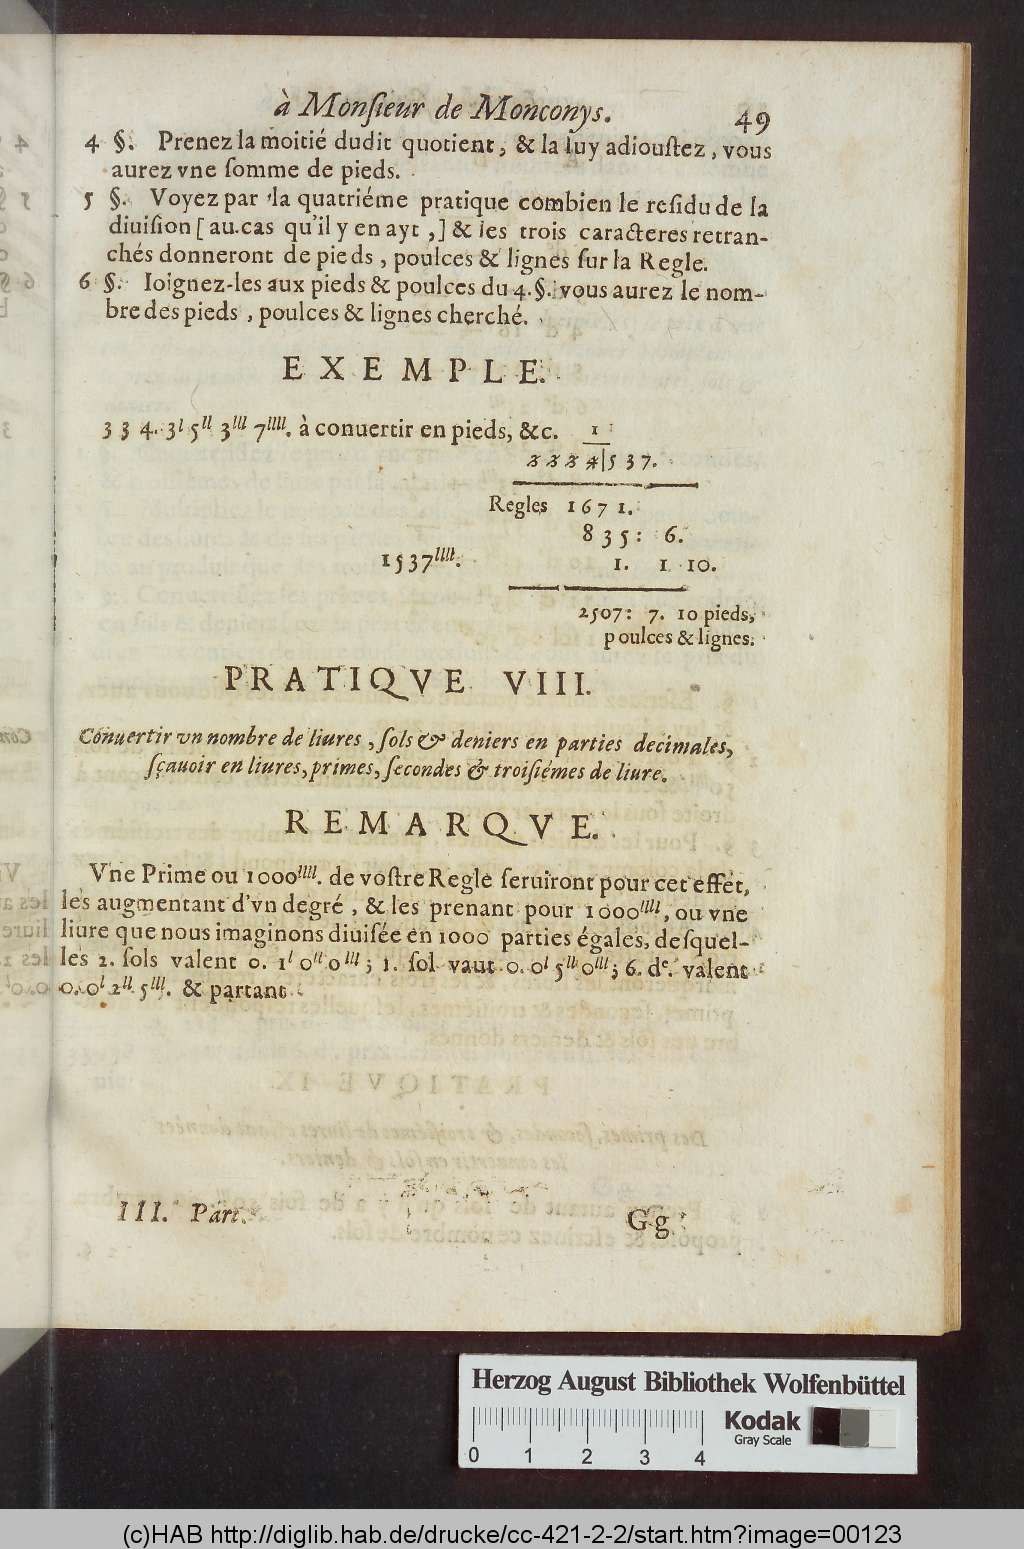 à Monſieur de Monconys. 49
4 §. Prenez la moitié dudit quotient, & la luy adiouſtez, vous
aurez vne ſomme de pieds.
5 §. Voyez par la quatriéme pratique combien le reſidu de la
diuiſion [ au cas qu'il y en ayt, ] & les trois caracteres retran-
chés donneront de pieds, poulces & lignes ſur la Regle.
6 §. Ioignez-les aux pieds & poulces du 4. §. vous aurez le nom-
bre des pieds, poulces & lignes cherché.
EXEMPLE.
3 3 4. 3ˡ 5ˡˡ 3ˡˡˡ 7ˡˡˡˡ. à conuertir en pieds, &c. 1
3 3 3 4|5 3 7.
Regles 1 6 7 1.
8 3 5: 6.
1537ˡˡˡˡ. 1. 1 10.
2507: 7. 10 pieds,
poulces & lignes.
PRATIQVE VIII.
Conuertir vn nombre de liures, ſols & deniers en parties decimales,
ſçauoir en liures, primes, ſecondes & troiſiémes de liure.
REMARQVE.
Vne Prime ou 1000ˡˡˡˡ. de voſtre Regle ſeruiront pour cet effet,
les augmentant d'vn degré, & les prenant pour 1000ˡˡˡˡ, ou vne
liure que nous imaginons diuiſée en 1000 parties égales, deſquel-
les 2. ſols valent 0. 1ˡ 0ˡˡ 0ˡˡˡ; 1. ſol vaut 0. 0ˡ 5ˡˡ 0ˡˡˡ; 6. dᵉ. valent
0. 0ˡ 2ˡˡ. 5ˡˡˡ. & partant
III. Part. Gg
Herzog August Bibliothek Wolfenbüttel
Kodak
Gray Scale
0 1 2 3 4
(c)HAB http://diglib.hab.de/drucke/cc-421-2-2/start.htm?image=00123